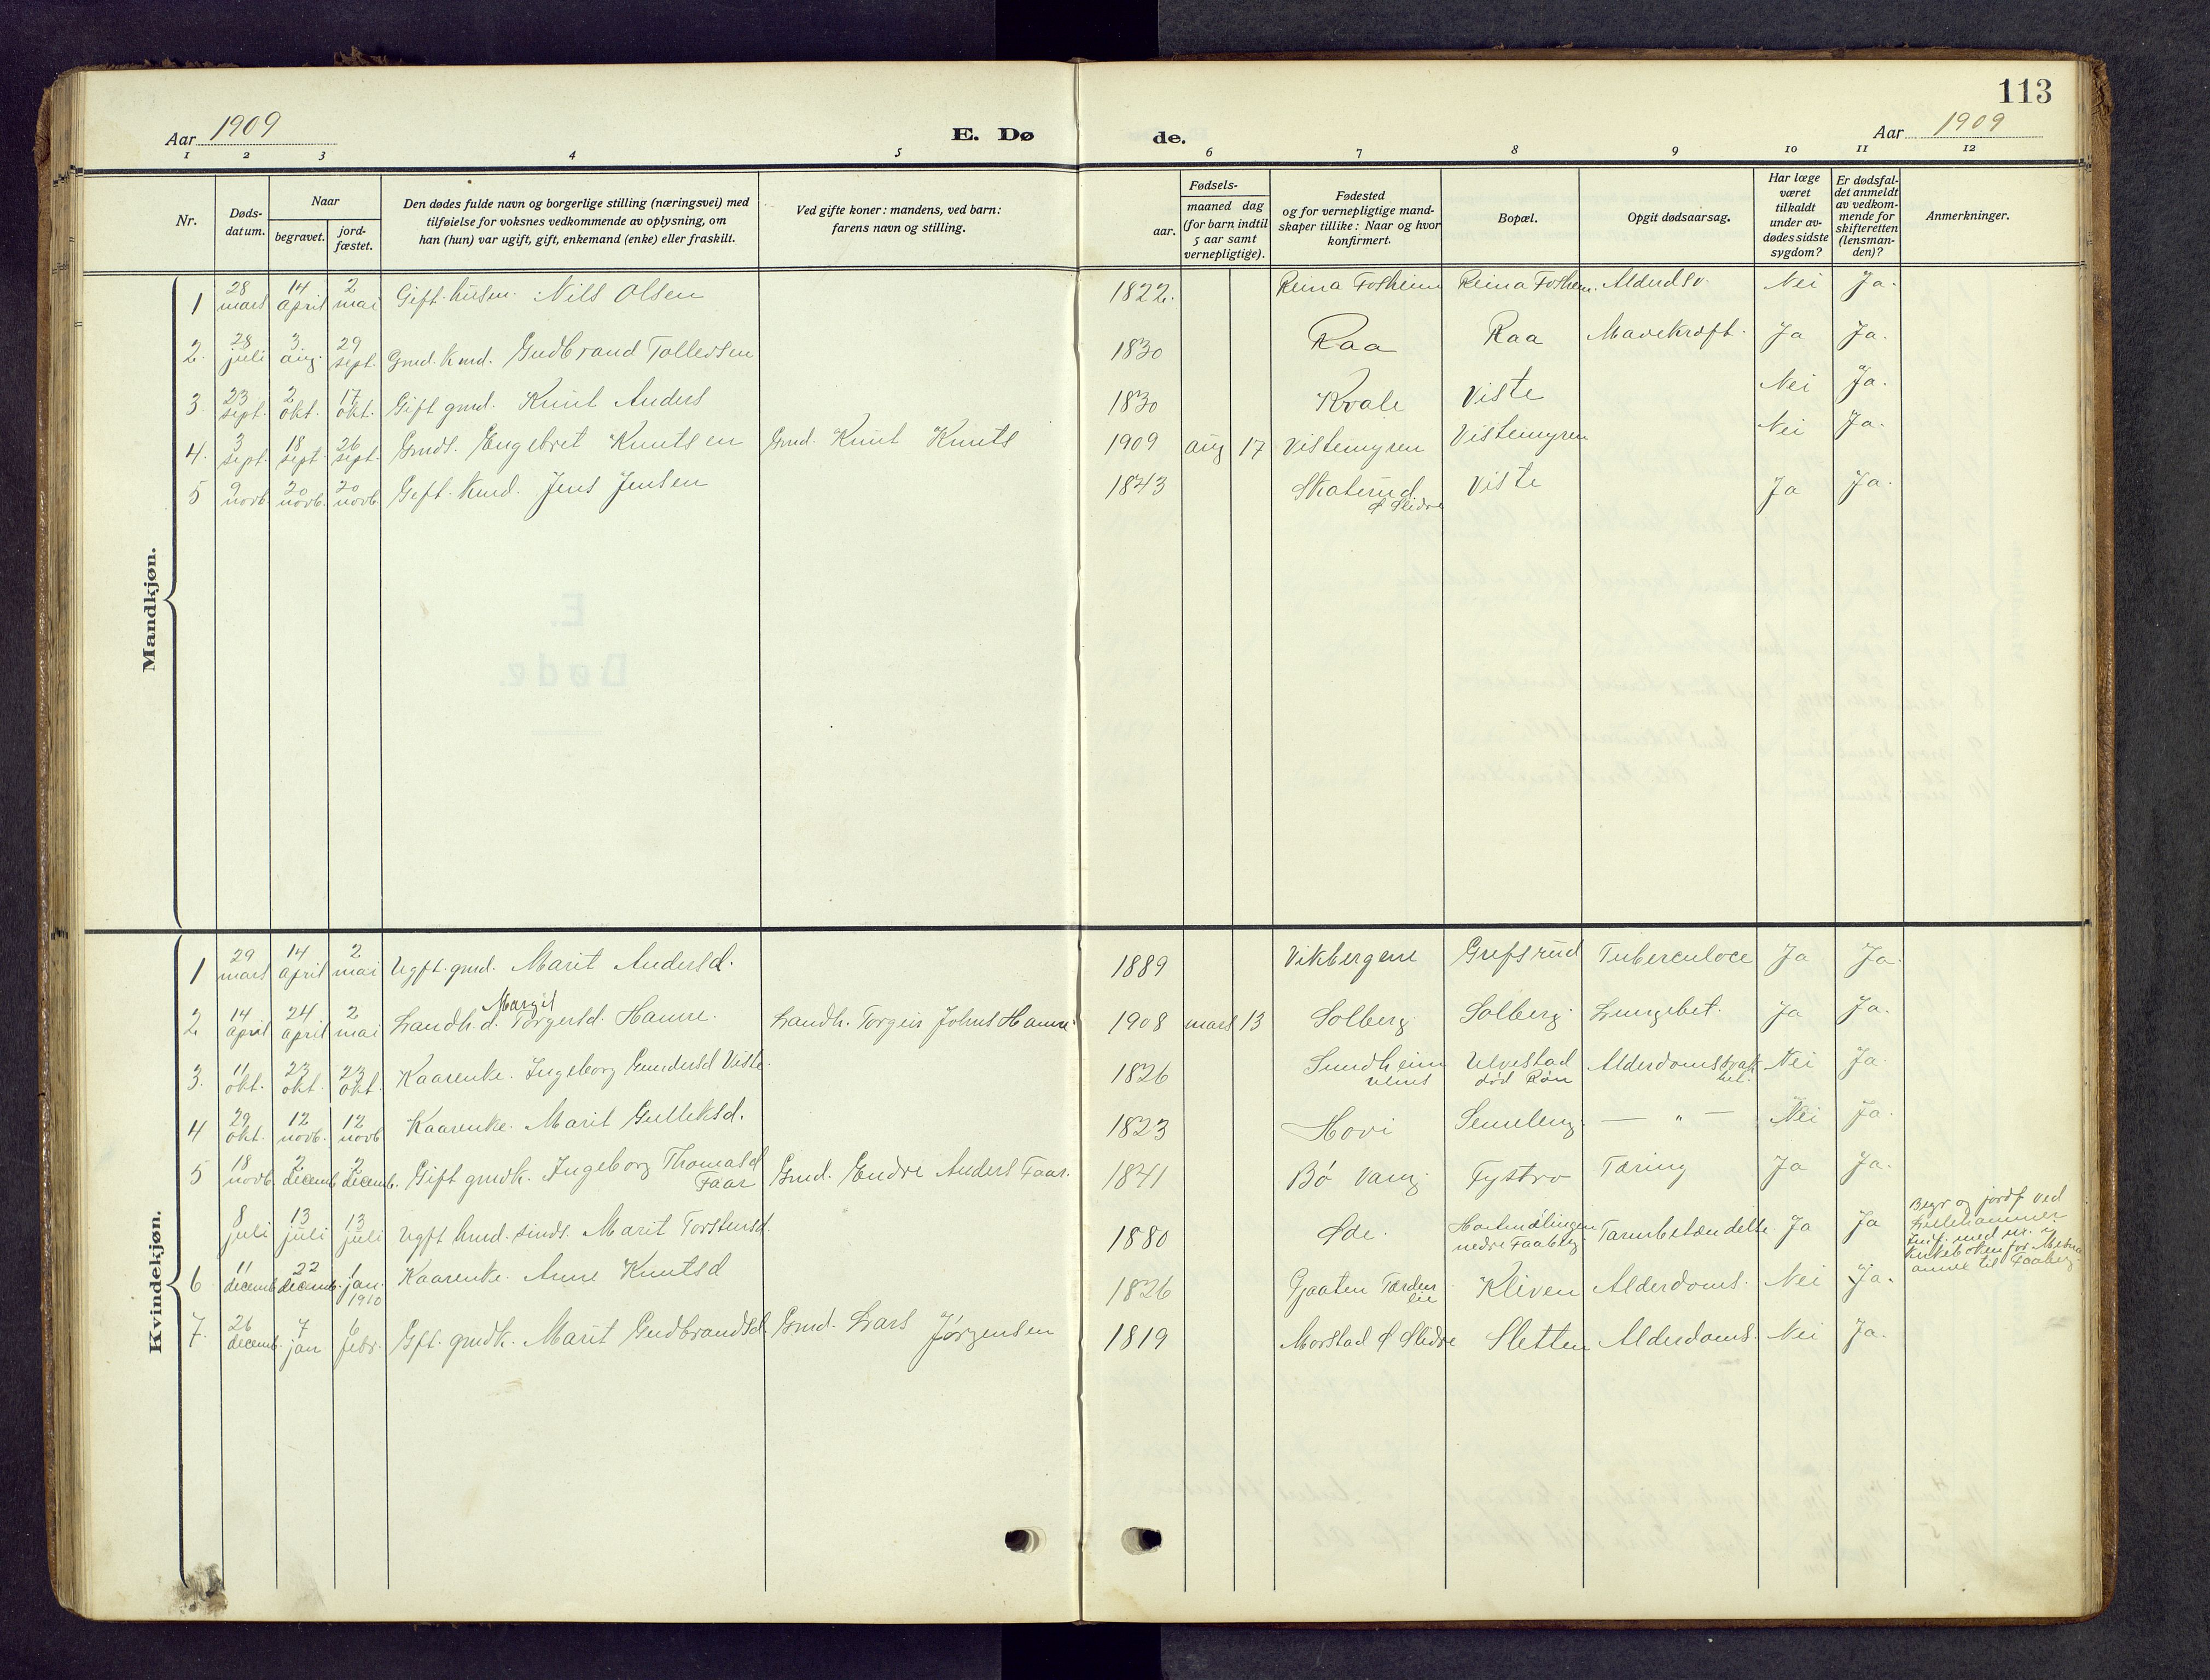 113
Aar 1909
E. Dø
de.
Aar 1909
1 2 3 4 5 6 7 8 9 10 11 12
Nr.
Døds-
datum.
Naar
begravet.
jord-
fæstet.
Den dødes fulde navn og borgerlige stilling (næringsvei) med
tilføielse for voksnes vedkommende av oplysning, om
han (hun) var ugift, gift, enkemand (enke) eller fraskilt.
Ved gifte koner: mandens, ved barn:
farens navn og stilling.
Fødsels-
aar.
maaned dag
(for barn indtil
5 aar samt
vernepligtige).
Fødested
og for vernepligtige mand-
skaper tillike: Naar og hvor
konfirmert.
Bopæl.
Opgit dødsaarsag.
Har læge
været
tilkaldt
under av-
dødes sidste
sygdom?
Er dødsfal-
det anmeldt
av vedkom-
mende for
skifteretten
(lensman-
den)?
Anmerkninger.
Mandkjøn.
1 28 mars 14 april 2 mai Gift. Nils Olsen 1822. Reina Fosheim Reina Foshem. Nei Ja.
2. 28 juli 3 aug. 29 sept. Gmd. Kmd. Gudbrand Tollefsen 1830 Raa Raa Mavekræft. Ja Ja.
3 23 sept. 2 okt. 17 okt. Gift gmd. Knut Anders 1830 Kvale Viste Nei Ja.
4. 3 sept. 18 sept. 26 sept. Gmds. Engebret Knutsen Gmd. Knut Knuts 1909 aug 17 Vistemyren Vistemyren Nei Ja.
5 9 novb. 20 novb. 20 novb. Gift. Kmd. Jens Jensen 1843 Skaterud Ø Slidre Viste Ja Ja.
E.
Døde.
Kvindekjøn.
1 29 mars 14 april 2 mai Ugft. gmd. Marit Andersd. 1889 Vikbergene Grefsrud Tuberculoce Ja Ja.
2 14 april 24 april 2 mai Landh. d. Margit Torgersd. Hamre. Landh. Torgeir Johns Hamre 1908 mars 13 Solberg Solberg. Lungebet. Ja Ja.
3. 11 okt. 23 okt. 23 okt. Kaarenke. Ingeborg Gundersd Viste. 1826 Sundheim Ulvestad død Røn Alderdomssvak het. Nei Ja
4 29 okt. 12 novb. 12 novb Kaarenke. Marit Gulleksd. 1823 Hovi Semeleng. — " — Nei Ja.
5 18 novb. 2 decemb 2 decemb. Gift gmdk. Ingeborg Thomasd Faar Gmd. Endre Anders Faar. 1841 Bø Vang Fystro Tæring Ja Ja.
8 juli 13 juli 13 juli Ugft Kmd. sinds. Marit Torstensd. 1880 Øde. nedre Faaberg Tarmbetændelse. Ja Ja Begr og jordf ved Lillehammer
6 11 decemb 22 decemb. 1 jan. 1910 Kaarenke. Anne Knutsd 1826 Gjaaten Kliven Alderdoms. Nei Ja.
7. 26 decemb. 7 jan 6 febr. Gft. gmdk. Marit Gudbrandsd. Gmd. Lars Jørgensen 1819 Morstad Ø Slidre Sletten Alderdoms. Nei Ja.